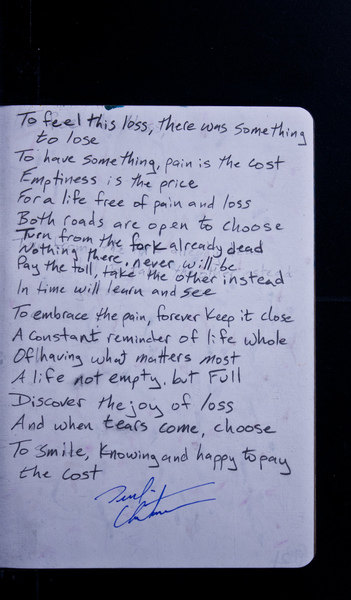 To feel this loss, there was something
to lose
To have something, pain is the cost
Emptiness is the price
For a life free of pain and loss
Both roads are open to choose
Turn from the fork already dead
Nothing there, never will be
Pay the toll, take the other instead
In time will learn and see
To embrace the pain, forever keep it close
A constant reminder of life whole
Of having what matters most
A life not empty, but Full
Discover the joy of loss
And when tears come, choose
To smile, knowing and happy to pay
the cost